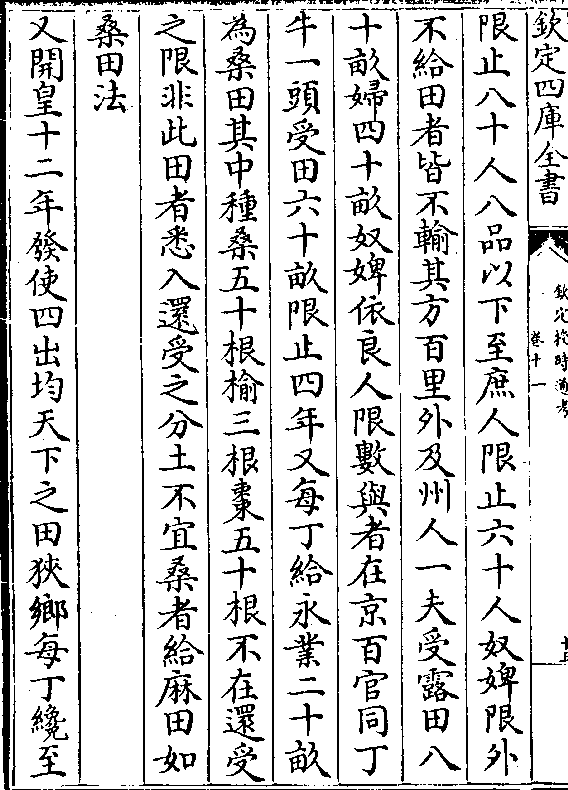 欽定四庫全書
欽定授時通考
卷十一
限止八十人八品以下至庶人限止六十人奴婢限外
不給田者皆不輸其方百里外及州人一夫受露田八
十畝婦四十畝奴婢依良人限數與者在京百官同丁
牛一頭受田六十畝限止四年又每丁給永業二十畝
為桑田其中種桑五十根榆三根棗五十根不在還受
之限非此田者悉入還受之分土不宜桑者給麻田如
桑田法
又開皇十二年發使四出均天下之田狹鄉每丁纔至